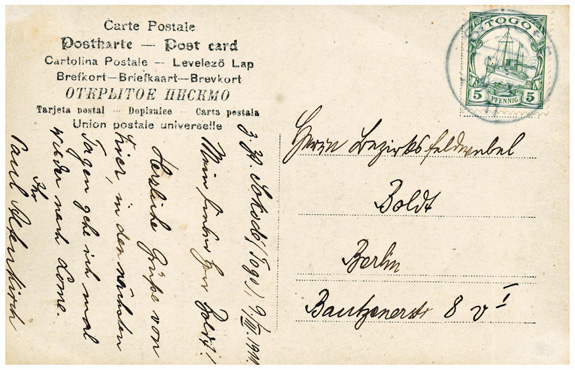 Carte Postale
Postkarte — Post card
Cartolina Postale — Levelező Lap
Brefkort—Briefkaart—Brevkort
ОТКРЫТОЕ ПИСЬМО
Tarjeta postal — Dopisnice — Carta postala
Union postale universelle
TOGO
5 PFENNIG 5
Herrn Bezirksfeldwebel
Boldt
Berlin
Bautzenerstr 8 v I
z. Zt. Sokodé (Togo) 9/III 1911.
Mein lieber Herr Boldt!
Herzliche Grüße von
hier, in den nächsten
Tagen gehe ich mal
wieder nach Lome.
Ihr
Paul